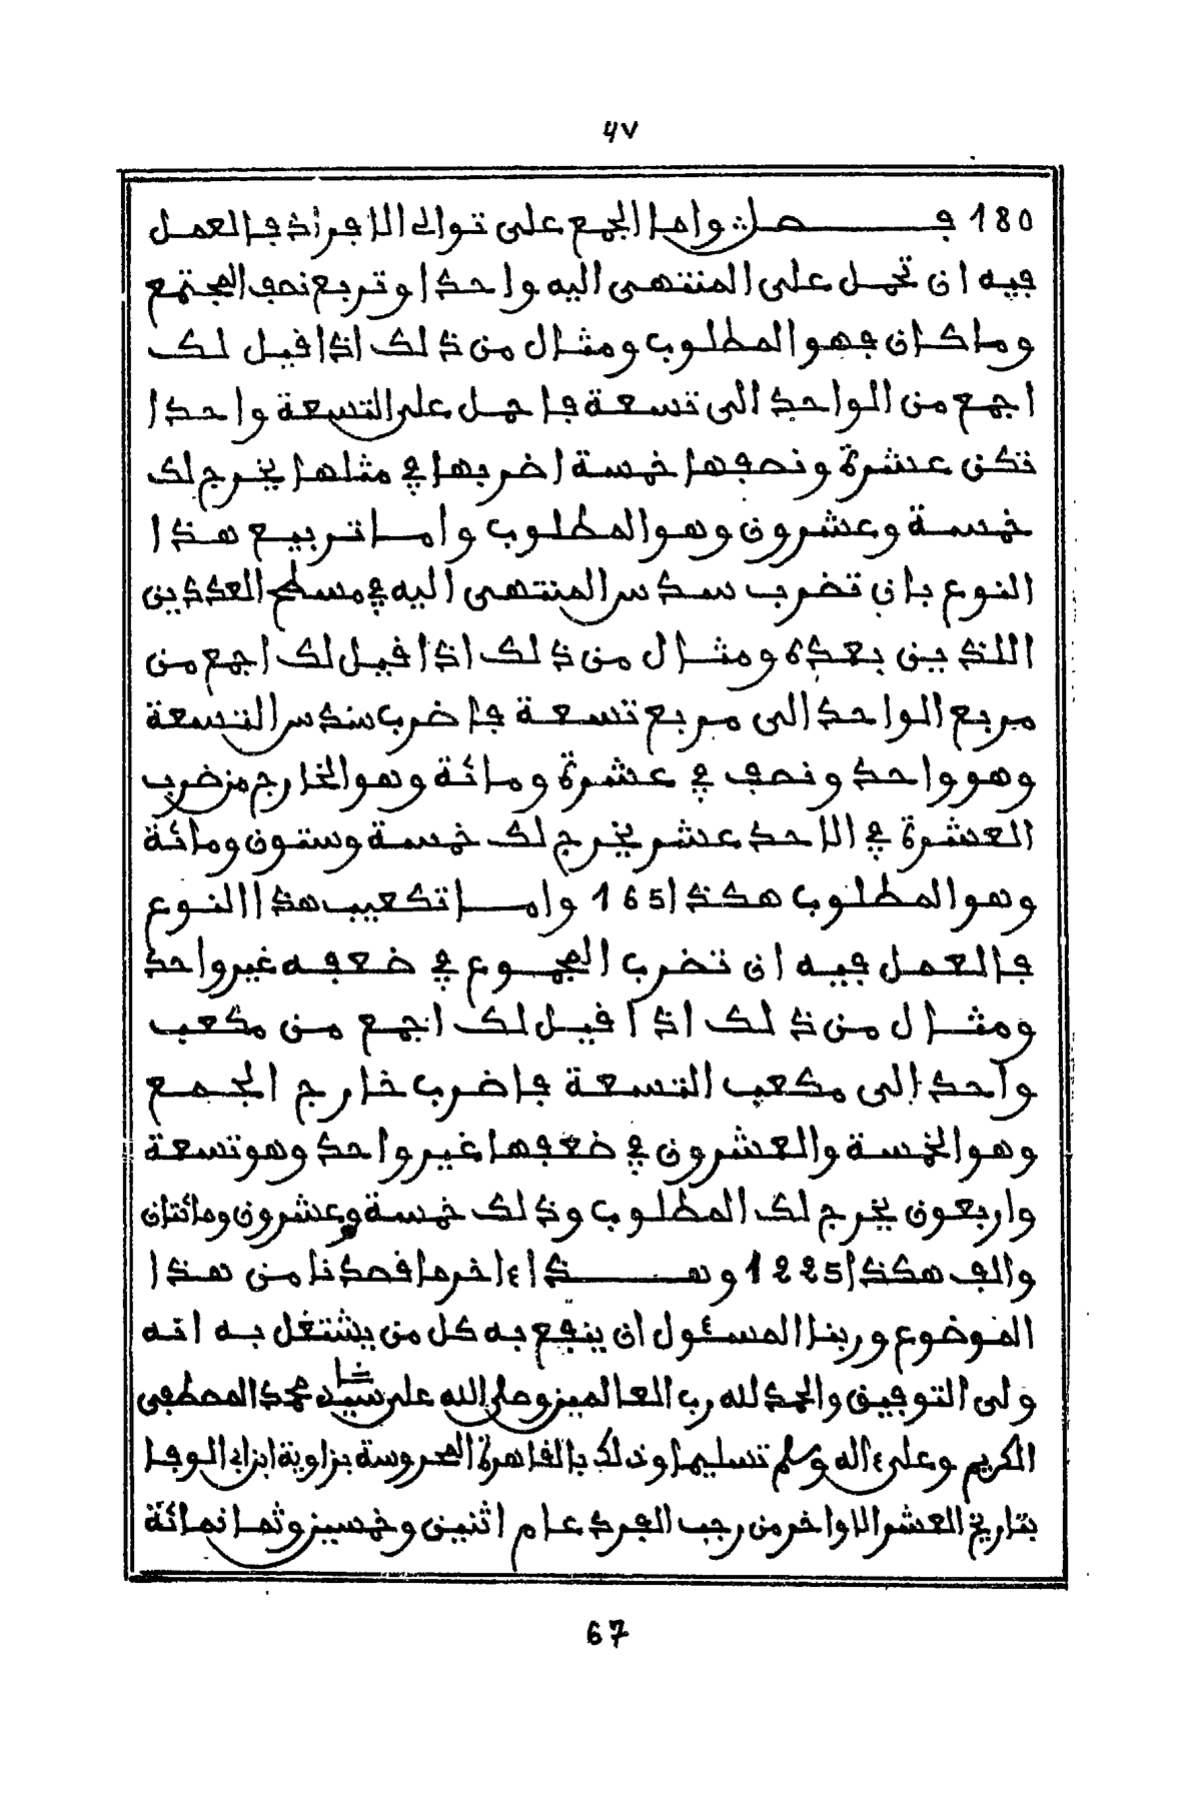 ٦٧
180 فصل واما الجمع على توالى الافراد فالعمل
فيه ان تحمل على المنتهى اليه واحدا وتربع نصف المجتمع
وما كان فهو المطلوب ومثال من ذلك اذا قيل لك
اجمع من الواحد الى تسعة فاحمل على التسعة واحدا
تكن عشرة ونصفها خمسة اضربها في مثلها يخرج لك
خمسة وعشرون وهو المطلوب واما تربيع هذا
النوع بان تضرب سدس المنتهى اليه في مسطح العددين
اللذين بعده ومثال من ذلك اذا قيل لك اجمع من
مربع الواحد الى مربع تسعة فاضرب سدس التسعة
وهو واحد ونصف في عشرة ومائة وهو الخارج من ضرب
العشرة في الاحد عشر يخرج لك خمسة وستون ومائة
وهو المطلوب هكذا 165 واما تكعيب هذا النوع
فالعمل فيه ان تضرب المجموع في ضعفه غير واحد
ومثال من ذلك اذا قيل لك اجمع من مكعب
واحد الى مكعب التسعة فاضرب خارج الجمع
وهو الخمسة والعشرون في ضعفها غير واحد وهو تسعة
واربعون يخرج لك المطلوب وذلك خمسة وعشرون ومائتان
والف هكذا 1225 وهذا ءاخر ما قصدنا من هذا
الموضوع وربنا المسئول ان ينفع به كل من يشتغل به انه
ولى التوفيق والحمد لله رب العالمين وصلى الله على سيدنا محمد المصطفى
الكريم وعلى ءاله وسلم تسليما وذلك بالقاهرة المحروسة بزاوية ابن ابى الوفا
بتاريخ العشر الاواخر من رجب الفرد عام اثنين وخمسين وثمانمائة
67